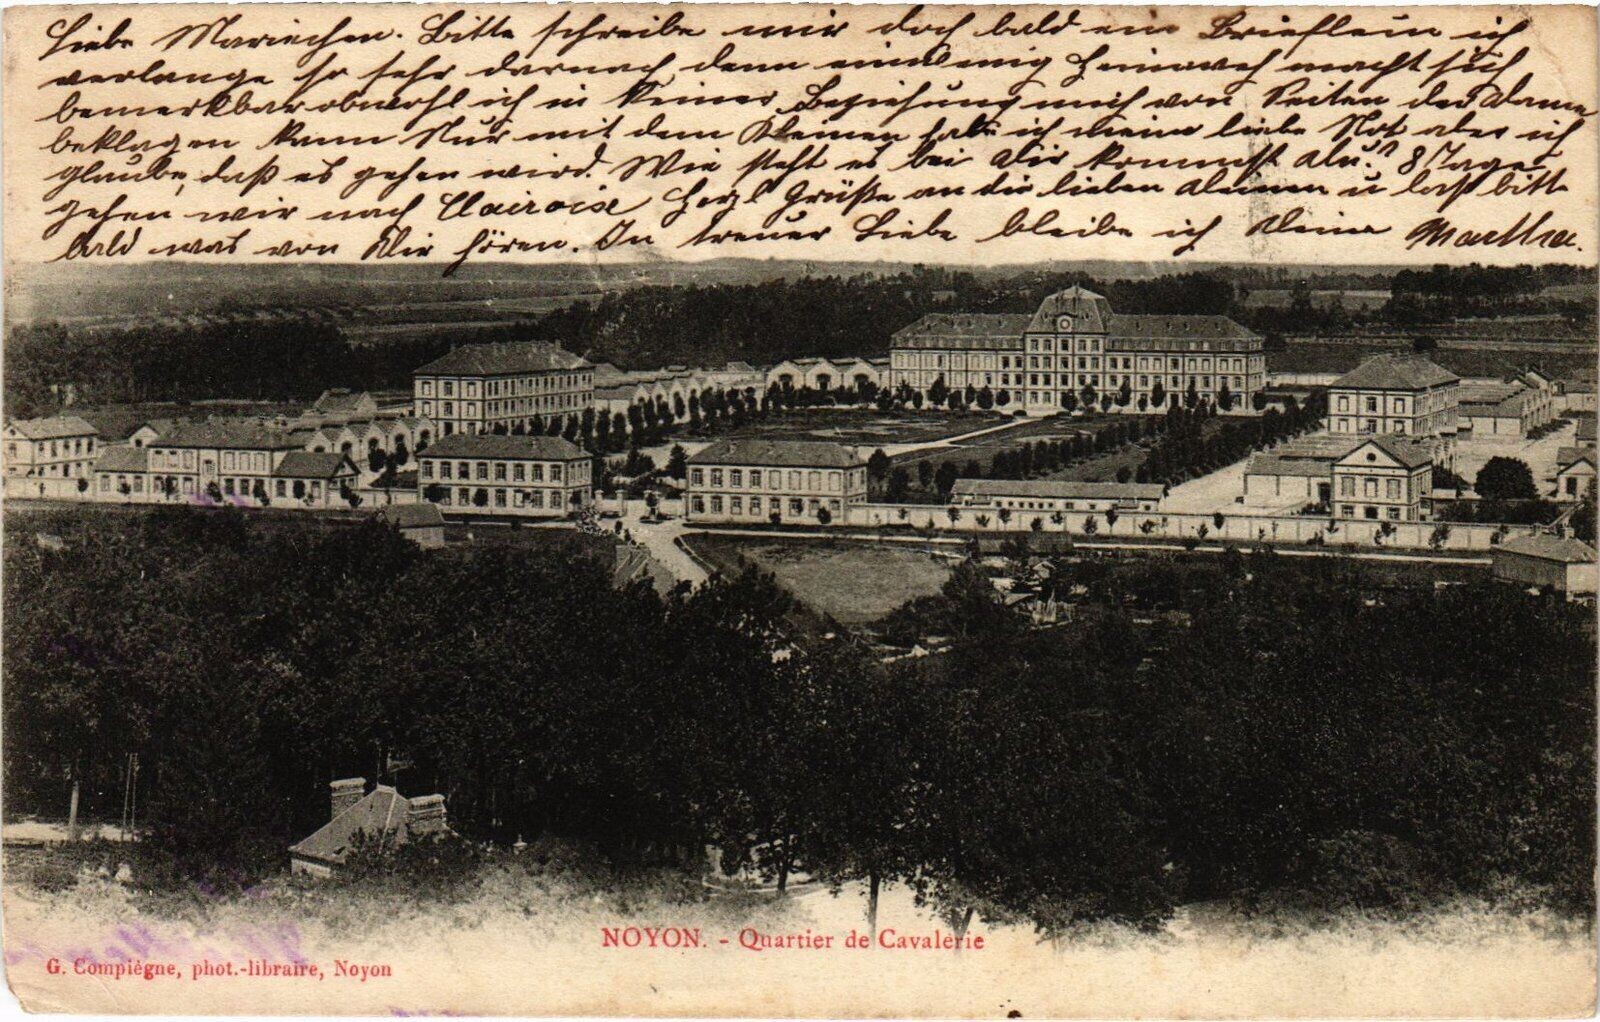 Liebe Mariechen. Bitte schreibe mir doch bald ein Brieflein ich
verlange so sehr darnach, denn ein wenig Heimweh macht sich
bemerkbar obwohl ich in keiner Beziehung mich von Seiten der Dame
beklagen kann Nur mit dem Kleinen habe ich meine liebe Not aber ich
glaube, daß es gehen wird. Wie steht es bei Dir kommst Du? 8 Tagen
gehen wir nach Clairoix Herzl Grüße an die lieben Deinen u laß bitte
bald was von Dir hören. In treuer Liebe bleibe ich Deine Martha.
NOYON. - Quartier de Cavalerie
G. Compiégne, phot.-libraire, Noyon